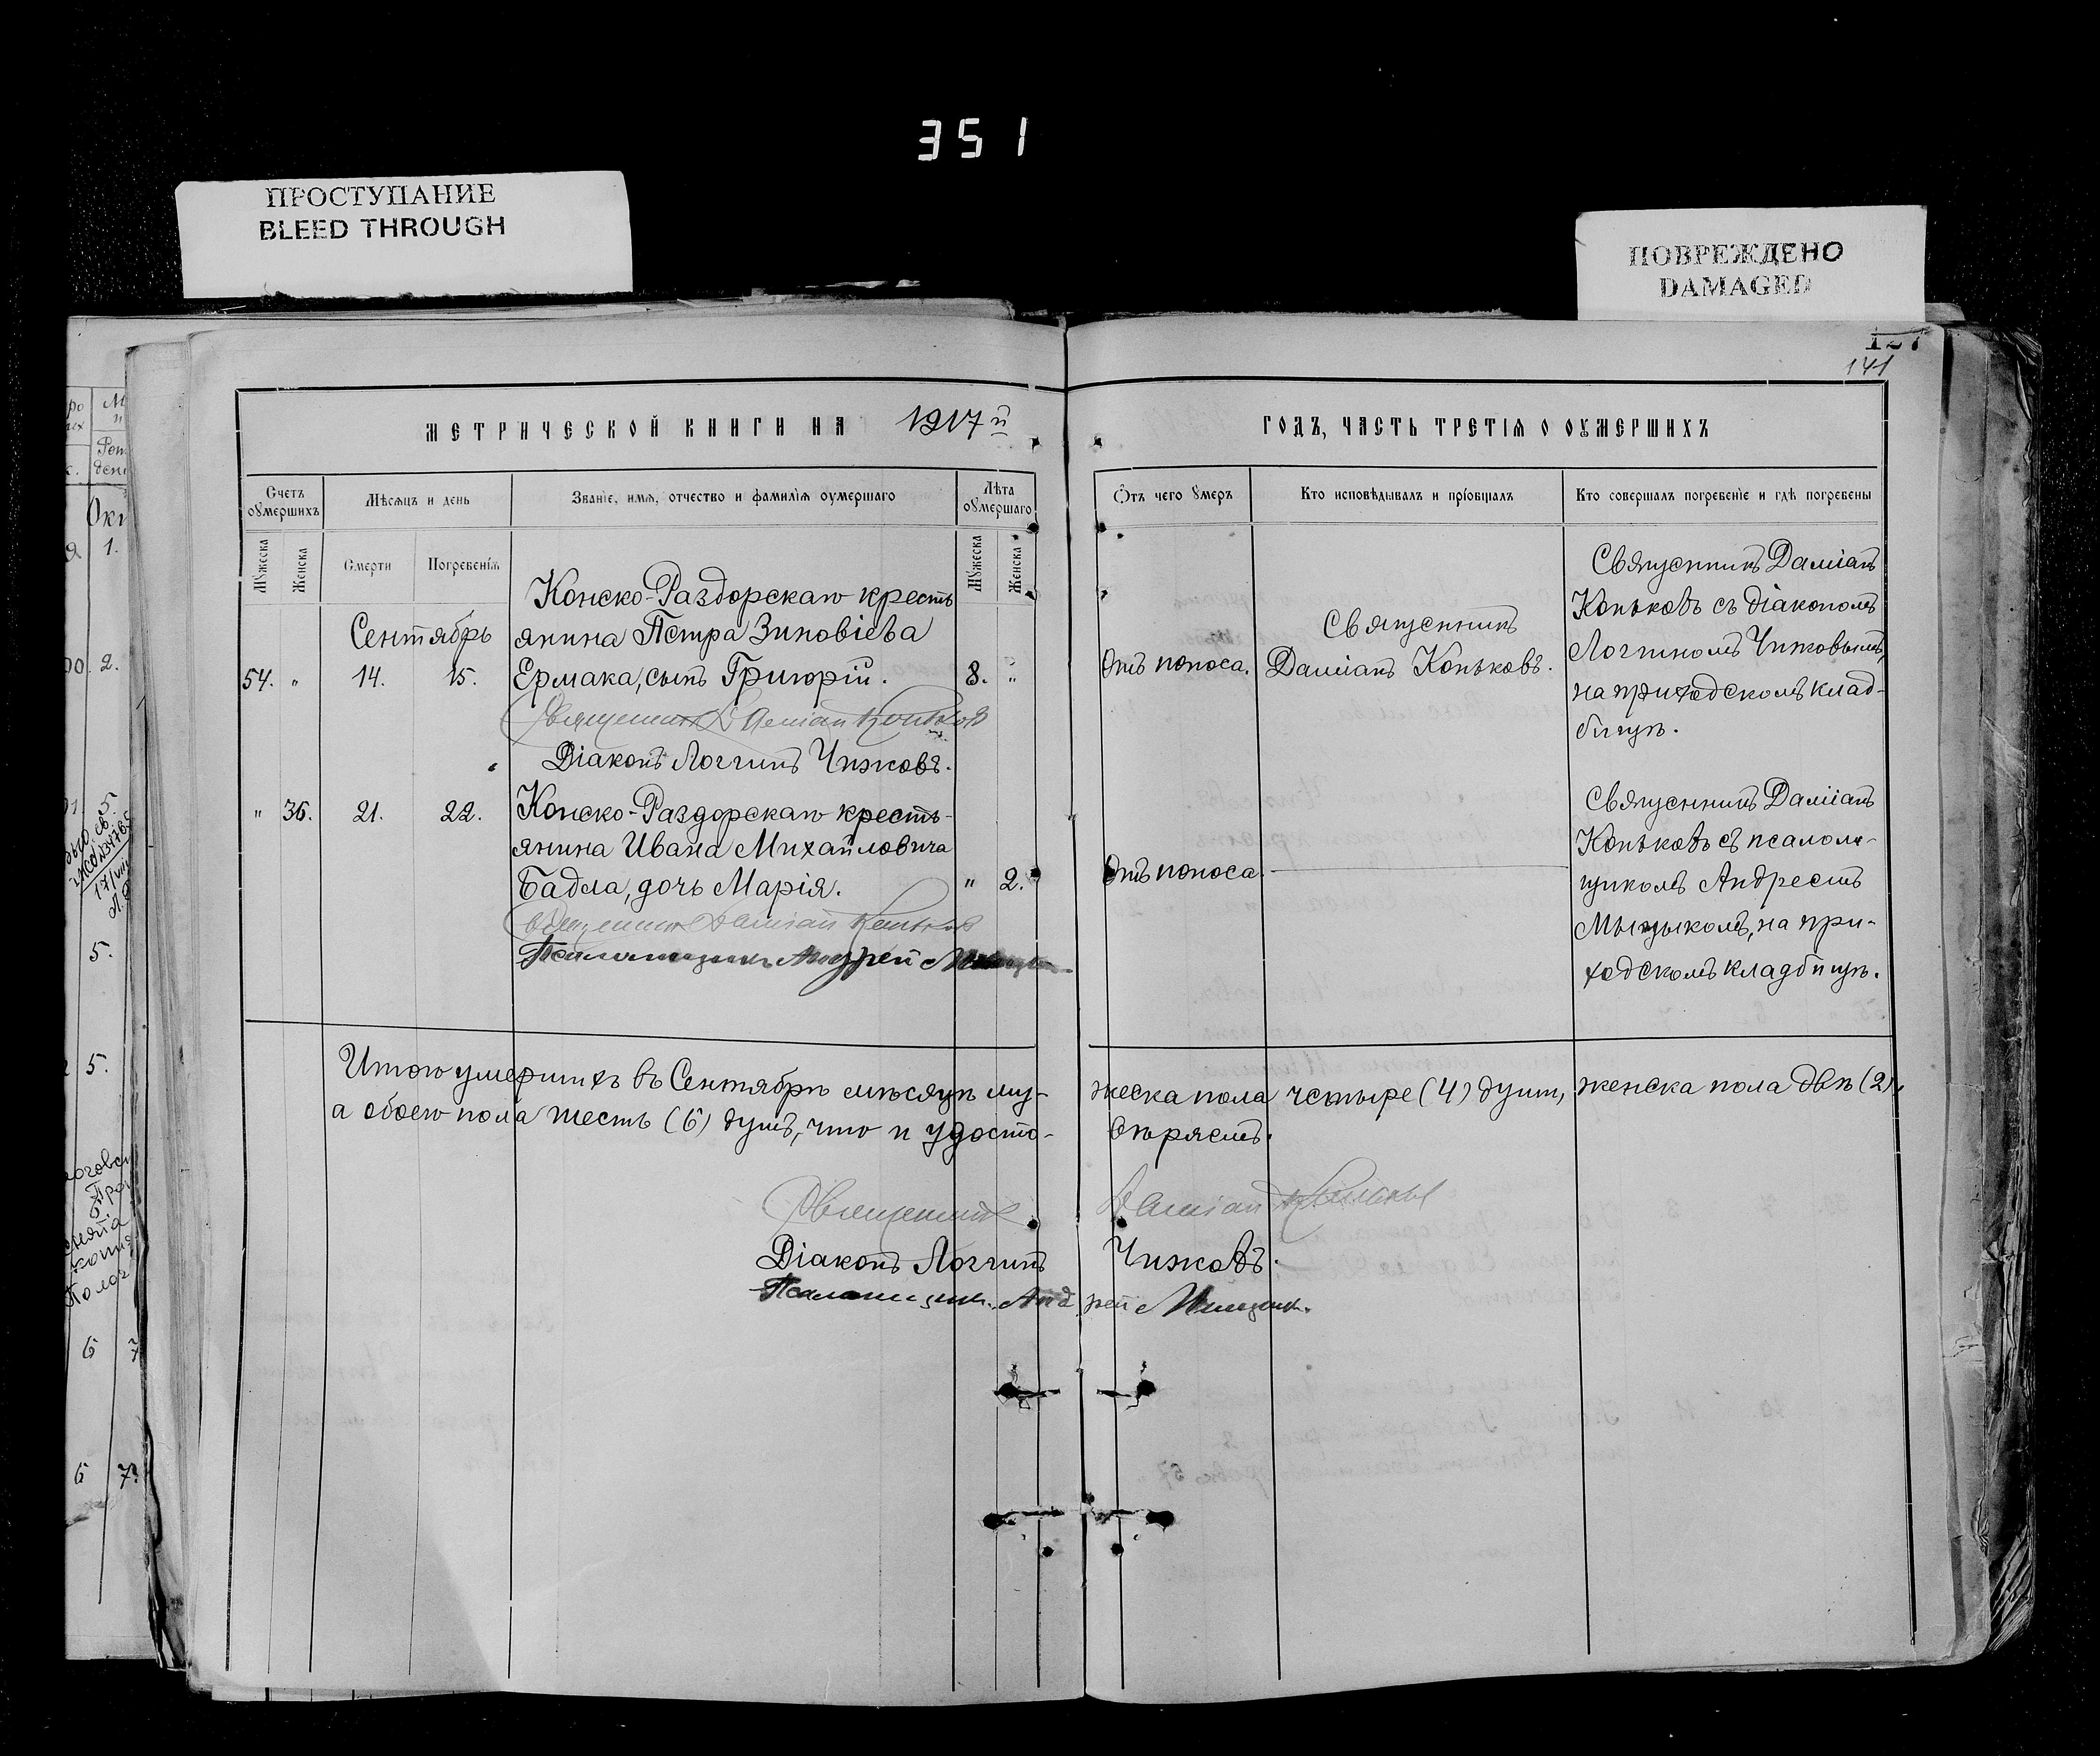 351
ПРОСТУПАНИЕ
BLEED THROUGH
ПОВРЕЖДЕНО
DAMAGED
141
МЕТРИЧЕСКОЙ КНИГИ НА 1917й
ГОДЪ, ЧАСТЬ ТРЕТІЯ О ОУМЕРШИХЪ
Счетъ оумершихъ
Мѣсяцъ и день
Званіе, имя, отчество и фамилія оумершаго
Лѣта оумершаго
Отъ чего умеръ
Кто исповѣдывалъ и пріобщалъ
Кто совершалъ погребеніе и гдѣ погребены
Мужеска
Женска
Смерти
Погребенія
Мужеска
Женска
Сентябрь
54. " 14. 15.
Конско-Раздорскаго кресть
янина Петра Зиновіева
Ермака, сынъ Григорій. 8. "
Священникъ Даміанъ Коньковъ
Діаконъ Логгинъ Чижовъ.
Отъ поноса.
Священникъ
Даміанъ Коньковъ.
Священникъ Даміанъ
Коньковъ съ діакономъ
Логгиномъ Чижовымъ,
на приходскомъ клад-
бищѣ.
" 36. 21. 22.
Конско-Раздорскаго кресть-
янина Ивана Михайловича
Бадла, дочь Марія. " 2.
Священникъ Даміанъ Коньковъ
Псаломщикъ Андрей
Отъ поноса.
Священникъ Даміанъ
Коньковъ съ псалом-
щикомъ Андреемъ
Мыцыкомъ, на при-
ходскомъ кладбищѣ.
Итого умершихъ въ Сентябрѣ мѣсяцѣ му-жеска пола четыре (4) душ, женска пола двѣ (2),
а обоего пола шесть (6) душъ, что и удосто-вѣряемъ.
Священникъ Даміанъ Коньковъ
Діаконъ Логгинъ Чижовъ.
Псаломщикъ Андрей Мыцыкъ.